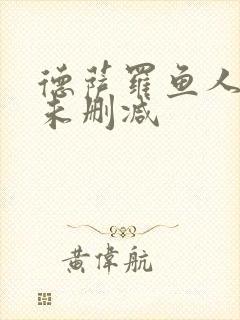 德萨罗鱼人
未删减
黄偉航